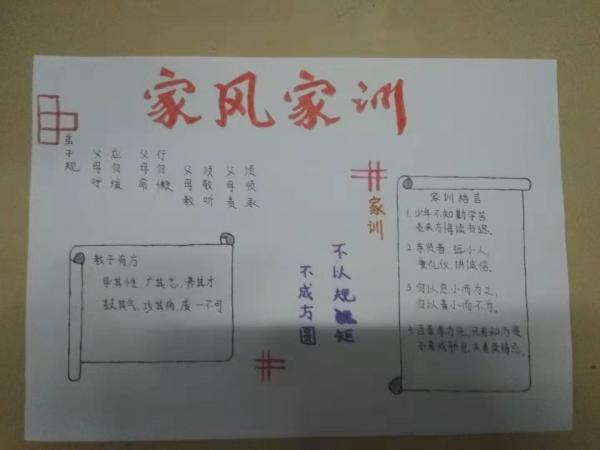 家风家训
弟子规
父母呼
应勿缓
父母命
行勿懒
父母教
须敬听
父母责
须顺承
教子有方
其性,广其志,养其才
鼓其气,攻其病,废一不可
不以规矩
不成方圆
家训
家训格言
1. 少年不知勤学苦,
老来方悔读书迟.
2. 亲贤者,远小人,
重礼仪,讲诚信.
3. 勿以恶小而为之,
勿以善小而不为.
4. 百善孝为先,